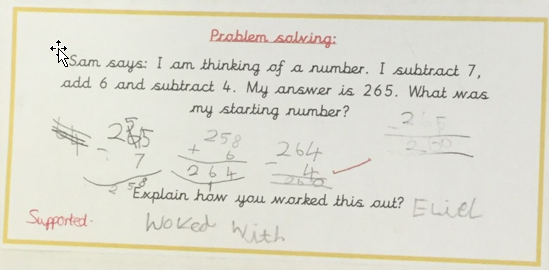 Problem solving:
Sam says: I am thinking of a number. I subtract 7,
add 6 and subtract 4. My answer is 265. What was
my starting number?
265 - 7 258
258 + 6 264
264 - 4 260
Explain how you worked this out? Eliel
Supported. Woked With